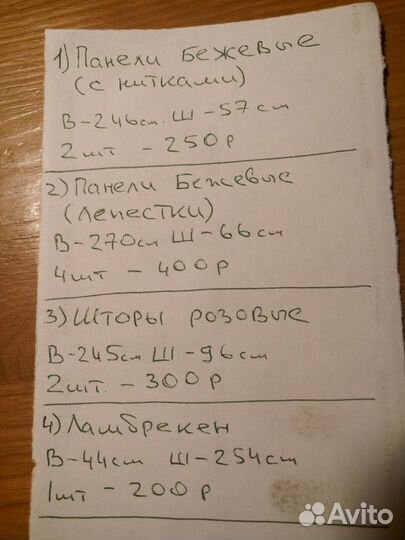 1) Панели Бежевые
(с нитками)
В-246см. Ш-57см
2шт - 250р
2) Панели Бежевые
(лепестки)
В-270см Ш-66см
4шт - 400р
3) Шторы розовые
В-245см Ш-96см
2шт. - 300р
4) Ламбрекен
В-44см Ш-254см
1шт - 200р
Avito